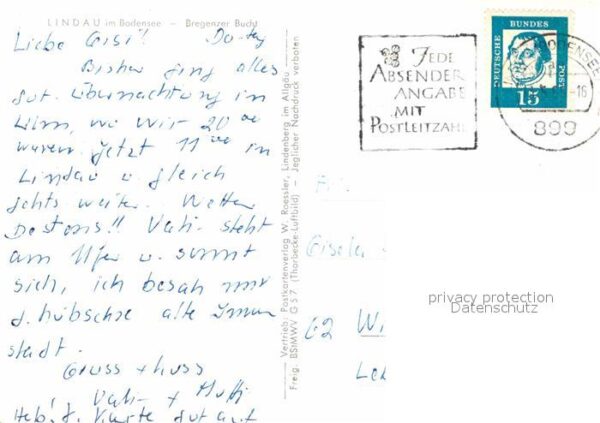 LINDAU im Bodensee – Bregenzer Bucht
Liebe Gisi!
Bisher ging alles
gut. Übernachtung in
Ulm, wo wir 20 00
waren. Jetzt 11 00 in
Lindau u. gleich
gehts weiter. Wetter
Bestens!! Vati steht
am Ufer u. sonnt
sich, ich besah mir
d. hübsche alte Innen
stadt.
Gruss + Kuss
Vati + Mutti
Heb. d. Karte gut auf
Vertrieb: Postkartenverlag W. Roessler, Lindenberg im Allgäu
Freig. BStMWV G S 7 (Thorbecke-Luftbild) – Jeglicher Nachdruck verboten
JEDE
ABSENDER
ANGABE
MIT
POSTLEITZAHL
DEUTSCHE
BUNDES
POST
15
BODENSEE
-16
899
Gisela
62 Wi
privacy protection
Datenschutz